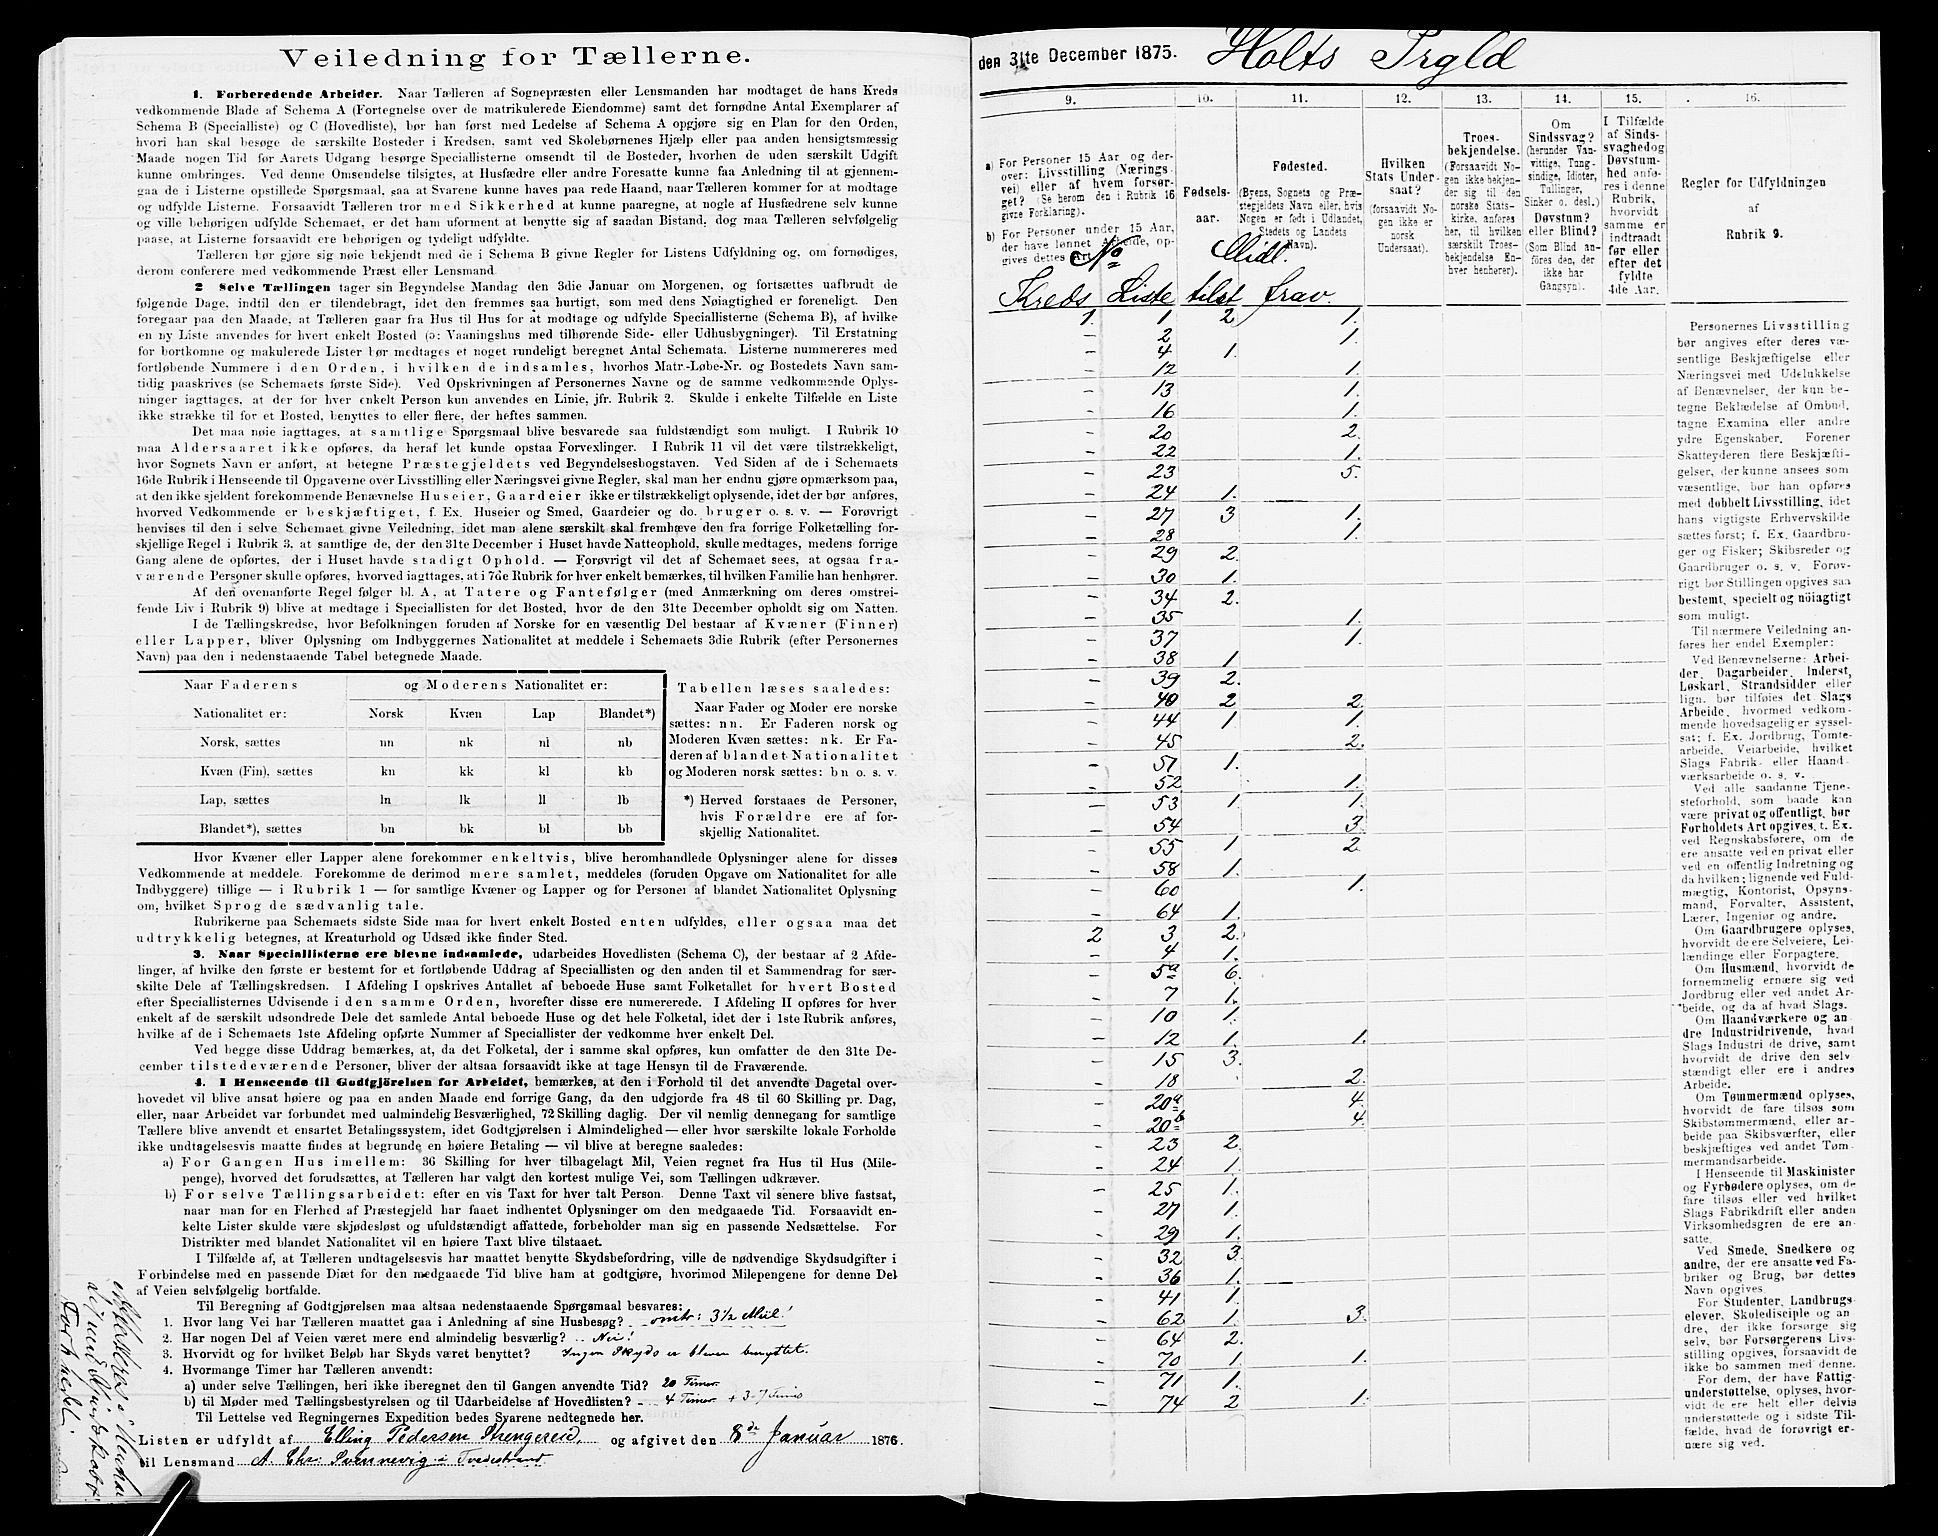 Veiledning for Tællerne.
1. Forberedende Arbeider. Naar Tælleren af Sognepræsten eller Lensmanden har modtaget de hans Kreds
vedkommende Blade af Schema A (Fortegnelse over de matrikulerede Eiendomme) samt det fornødne Antal Exemplarer af
Schema B (Specialliste) og C (Hovedliste), bør han først med Ledelse af Schema A opgjøre sig en Plan for den Orden,
hvori han skal besøge de særskilte Bosteder i Kredsen, samt ved Skolebørnenes Hjælp eller paa anden hensigtsmæssig
Maade nogen Tid før Aarets Udgang besørge Speciallisterne omsendt til de Bosteder, hvorhen de uden særskilt Udgift
kunne ombringes. Ved denne Omsendelse tilsigtes, at Husfædre eller andre Foresatte kunne faa Anledning til at gjennem-
gaa de i Listerne opstillede Spørgsmaal, saa at Svarene kunne haves paa rede Haand, naar Tælleren kommer for at modtage
og udfylde Listerne. Forsaavidt Tælleren tror med Sikkerhed at kunne paaregne, at nogle af Husfædrene selv kunne
og ville behørigen udfylde Schemaet, er det ham uforment at benytte sig af saadan Bistand, dog maa Tælleren selvfølgelig
paase, at Listerne forsaavidt ere behørigen og tydeligt udfyldte.
Tælleren bør gjøre sig nøie bekjendt med de i Schema B givne Regler for Listens Udfyldning og, om fornødiges,
derom conferere med vedkommende Præst eller Lensmand.
2 Selve Tællingen tager sin Begyndelse Mandag den 3die Januar om Morgenen, og fortsættes uafbrudt de
følgende Dage, indtil den er tilendebragt, idet den fremmes saa hurtigt, som med dens Nøiagtighed er foreneligt. Den
foregaar paa den Maade, at Tælleren gaar fra Hus til Hus for at modtage og udfylde Speciallisterne (Schema B), af hvilke
en ny Liste anvendes for hvert enkelt Bosted (ɔ: Vaaningshus med tilhørende Side- eller Udhusbygninger). Til Erstatning
for bortkomne og makulerede Lister bør medtages et noget rundeligt beregnet Antal Schemata. Listerne nummereres med
fortløbende Nummere i den Orden, i hvilken de indsamles, hvorhos Matr.-Løbe-Nr. og Bostedets Navn sam-
tidig paaskrives (se Schemaets første Side). Ved Opskrivningen af Personernes Navne og de samme vedkommende Oplys-
ninger iagttages, at der for hver enkelt Person kun anvendes en Linie, jfr. Rubrik 2. Skulde i enkelte Tilfælde en Liste
ikke strække til for et Bosted, benyttes to eller flere, der heftes sammen.
Det maa nøie iagttages, at samtlige Spørgsmaal blive besvarede saa fuldstændigt som muligt. I Rubrik 10
maa Aldersaaret ikke opføres, da heraf let kunde opstaa Forvexlinger. I Rubrik 11 vil det være tilstrækkeligt,
hvor Sognets Navn er anført, at betegne Præstegjeldets ved Begyndelsesbogstaven. Ved Siden af de i Schemaets
16de Rubrik i Henseende til Opgaverne over Livsstilling eller Næringsvei givne Regler, skal man her endnu gjøre opmærksom paa,
at den ikke sjeldent forekommende Benævnelse Huseier, Gaardeier ikke er tilstrækkeligt oplysende, idet der bør anføres,
hvorved Vedkommende er beskjæftiget, f. Ex. Huseier og Smed, Gaardeier og do. bruger o. s. v. — Forøvrigt
henvises til den i selve Schemaet givne Veiledning, idet man alene særskilt skal fremhæve den fra forrige Folketælling for-
skjellige Regel i Rubrik 3. at samtlige de, der den 31te December i Huset havde Natteophold, skulle medtages, medens forrige
Gang alene de opførtes, der i Huset havde stadigt Ophold. — Forøvrigt vil det af Schemaet sees, at ogsaa fra-
værende Personer skulle opføres, hvorved iagttages, at i 7de Rubrik for hver enkelt bemærkes, til hvilken Familie han henhører.
Af den ovenanførte Regel følger bl. A., at Tatere og Fantefølger (med Anmærkning om deres omstrei-
fende Liv i Rubrik 9) blive at medtage i Speciallisten for det Bosted, hvor de den 31te December opholdt sig om Natten.
I de Tællingskredse, hvor Befolkningen foruden af Norske for en væsentlig Del bestaar af Kvæner (Finner)
eller Lapper, bliver Oplysning om Indbyggernes Nationalitet at meddele i Schemaets 3die Rubrik (efter Personernes
Navn) paa den i nedenstaaende Tabel betegnede Maade.
Naar Faderens og Moderens Nationalitet er:
Nationalitet er: Norsk Kvæn Lap Blandet*)
Norsk, sættes nn nk nl nb
Kvæn (Fin), sættes kn kk kl kb
Lap, sættes ln lk ll lb
Blandet*), sættes bn bk bl bb
Tabellen læses saaledes:
Naar Fader og Moder ere norske
sættes: nn. Er Faderen norsk og
Moderen Kvæn sættes: nk. Er Fa-
deren af blandet Nationalitet
og Moderen norsk sættes: bn o. s. v.
*) Herved forstaaes de Personer,
hvis Forældre ere af for-
skjellig Nationalitet.
Hvor Kvæner eller Lapper alene forekommer enkeltvis, blive heromhandlede Oplysninger alene for disses
Vedkommende at meddele. Forekomme de derimod mere samlet, meddeles (foruden Opgave om Nationalitet for alle
Indbyggere) tillige — i Rubrik 1 — for samtlige Kvæner og Lapper og for Personer af blandet Nationalitet Oplysning
om, hvilket Sprog de sædvanlig tale.
Rubrikerne paa Schemaets sidste Side maa for hvert enkelt Bosted enten udfyldes, eller ogsaa maa det
udtrykkelig betegnes, at Kreaturhold og Udsæd ikke finder Sted.
3. Naar Speciallisterne ere blevne indsamlede, udarbeides Hovedlisten (Schema C), der bestaar af 2 Afde-
linger, af hvilke den første er bestemt for et fortløbende Uddrag af Speciallisten og den anden til et Sammendrag for sær-
skilte Dele af Tællingskredsen. I Afdeling I opskrives Antallet af beboede Huse samt Folketallet for hvert Bosted
efter Speciallisternes Udvisende i den samme Orden, hvorefter disse ere nummererede. I Afdeling II opføres for hver
enkelt af de særskilt udsondrede Dele det samlede Antal beboede Huse og det hele Folketal, idet der i 1ste Rubrik anføres,
hvilke af de i Schemaets 1ste Afdeling opførte Nummer af Speciallister der vedkomme hver enkelt Del.
Ved begge disse Uddrag bemærkes, at, da det Folketal, der i samme skal opføres, kun omfatter de den 31te De-
cember tilstedeværende Personer, bliver der altsaa forsaavidt ikke at tage Hensyn til de Fraværende.
4. I Henseende til Godtgjörelsen for Arbeidet, bemærkes, at den i Forhold til det anvendte Dagetal over-
hovedet vil blive ansat høiere og paa en anden Maade end forrige Gang, da den udgjorde fra 48 til 60 Skilling pr. Dag,
eller, naar Arbeidet var forbundet med ualmindelig Besværlighed, 72 Skilling daglig. Der vil nemlig dennegang for samtlige
Tællere blive anvendt et ensartet Betalingssystem, idet Godtgjörelsen i Almindelighed — eller hvor særskilte lokale Forholde
ikke undtagelsesvis maatte findes at begrunde en høiere Betaling — vil blive at beregne saaledes:
a) For Gangen Hus imellem: 36 Skilling for hver tilbagelagt Mil, Veien regnet fra Hus til Hus (Mile-
penge), hvorved det forudsættes, at Tælleren har valgt den kortest mulige Vei, som Tællingen udkræver.
b) For selve Tællingsarbeidet: efter en vis Taxt for hver talt Person. Denne Taxt vil senere blive fastsat,
naar man for en Flerhed af Præstegjeld har faaet indhentet Oplysninger om den medgaaede Tid. Forsaavidt en-
kelte Lister skulde være skjødesløst og ufuldstændigt affattede, forbeholder man sig en passende Nedsættelse. For
Distrikter med blandet Nationalitet vil en høiere Taxt blive tilstaaet.
I Tilfælde af, at Tælleren undtagelsesvis har maattet benytte Skydsbefordring, ville de nødvendige Skydsudgifter i
Forbindelse med en passende Diæt for den medgaaede Tid blive ham at godtgjøre, hvorimod Milepengene for denne Del
af Veien selvfølgelig bortfalde.
Til Beregning af Godtgjørelsen maa altsaa nedenstaaende Spørgsmaal besvares:
1. Hvor lang Vei har Tælleren maattet gaa i Anledning af sine Husbesøg? omtr: 3½ Miil!
2. Har nogen Del af Veien været mere end almindelig besværlig? Nei!
3. Hvorvidt og for hvilket Beløb har Skyds været benyttet? Ingen Skyds er bleven benyttet.
4. Hvormange Timer har Tælleren anvendt:
a) under selve Tællingen, heri ikke iberegnet den til Gangen anvendte Tid? 20 Timer
b) til Møder med Tællingsbestyrelsen og til Udarbeidelse af Hovedlisten? 4 Timer + 3-7 Timer
Til Lettelse ved Regningernes Expedition bedes Svarene nedtegnede her.
Listen er udfyldt af Elling Pedersen Strengereid, og afgivet den 8de Januar 1876.
til Lensmand A. Chr. Svennevig i Tvedestrand
den 31te December 1875. Holts Prgld
9. 10. 11. 12. 13. 14. 15. 16.
a) For Personer 15 Aar og der-
over: Livsstilling (Nærings-
vei) eller af hvem forsør-
get? (Se herom den i Rubrik 16
givne Forklaring).
b) For Personer under 15 Aar,
der have lønnet Arbeide, op-
gives dettes Art.
Fødsels-
aar.
Fødested.
(Byens, Sognets og Præ-
stegjeldets Navn eller, hvis
Nogen er født i Udlandet,
Stedets og Landets
Navn).
Hvilken
Stats Under-
saat?
(forsaavidt No-
gen ikke er
norsk
Undersaat).
Troes-
bekjendelse.
(Forsaavidt No-
gen ikke bekjen-
der sig til den
norske Stats-
kirke, anføres
her, til hvilken
særskilt Troes-
bekjendelse En-
hver henhører).
Om
Sindssvag?
(herunder Van-
vittige, Tung-
sindige, Idioter,
Tullinger,
Sinker o. desl.)
Døvstum?
eller Blind?
(Som Blind an-
föres den, der
ikke har
Gangsyn).
I Tilfælde
af Sinds-
svaghed og
Døvstum-
hed anfø-
res i denne
Rubrik,
hvorvidt
samme er
indtraadt
før eller
efter det
fyldte
4de Aar.
Regler for Udfyldningen
af
Rubrik 9.
No Midl.
Kreds Liste tilst frav.
1. 1 2 1.
– 2 1.
– 4 1.
– 12 1.
– 13 1.
– 16 1.
– 20 2.
– 22 1.
– 23 5.
– 24 1.
– 27 3 1.
– 28 1.
– 29 2.
– 30 1.
– 34 2.
– 35 1.
– 37 1.
– 38 1
– 39 2.
– 40 2 2.
– 44 1 1.
– 45 2.
– 51 1.
– 52 1.
– 53 1 1.
– 54 3.
– 55 1 2.
– 58 1.
– 60 1.
– 64 1.
2 3 2.
– 4 1.
– 5a 6.
– 7 1.
– 10 1.
– 12 1. 1.
– 15 3.
– 18 2.
– 20a 4.
– 20b 4.
– 23 2.
– 24 1.
– 25 1.
– 27 1.
– 29 1.
– 32 3.
– 36 1.
– 41 1.
– 62 1. 3.
– 64 2.
– 70 1. 1.
– 71 1.
– 74 2 1.
Personernes Livsstilling
bør angives efter deres væ-
sentlige Beskjæftigelse eller
Næringsvei med Udelukkelse
af Benævnelser, der kun be-
tegne Beklædelse af Ombud,
tagne Examina eller andre
ydre Egenskaber. Forener
Skatteyderen flere Beskjæfti-
gelser, der kunne ansees som
væsentlige, bør han opføres
med dobbelt Livsstilling, idet
hans vigtigste Erhvervskilde
sættes først; f. Ex. Gaardbru-
ger og Fisker; Skibsreder og
Gaardbruger o. s. v. Forøv-
rigt bør Stillingen opgives saa
bestemt, specielt og nöiagtigt
som muligt.
Til nærmere Veiledning an-
føres her endel Exempler:
Ved Benævnelserne: Arbei-
der, Dagarbeider, Inderst,
Løskarl, Strandsidder eller
lign. bør tilføies det Slags
Arbeide, hvormed vedkom-
mende hovedsagelig er syssel-
sat; f. Ex. Jordbrug, Tomte-
arbeide, Veiarbeide, hvilket
Slags Fabrik- eller Haand-
værksarbeide o. s. v.
Ved alle saadanne Tjene-
steforhold, som baade kan
være privat og offentligt, bør
Forholdets Art opgives, t. Ex.
ved Regnskabsførere, om de
ere ansatte ved en privat eller
ved en offentlig Indretning og
da hvilken; lignende ved Fuld-
mægtig, Kontorist, Opsyns-
mand, Forvalter, Assistent,
Lærer, Ingeniør og andre.
Om Gaardbrugere oplyses,
hvorvidt de ere Selveiere, Lei-
lændinge eller Forpagtere.
Om Husmænd, hvorvidt de
fornemmelig ernære sig ved
Jordbrug eller ved andet Ar-
beide, og da af hvad Slags.
Om Haandværkere og an-
dre Industridrivende, hvad
Slags Industri de drive, samt
hvorvidt de drive den selv-
stændigt eller ere i andres
Arbeide.
Om Tømmermænd oplyses,
hvorvidt de fare tilsøs som
Skibstømmermænd, eller ar-
beide paa Skibsværfter, eller
beskjæftiges ved andet Tøm-
mermandsarbeide.
I Henseende til Maskinister
og Fyrbødere oplyses, om de
fare tilsøs eller ved hvilket
Slags Fabrikdrift eller anden
Virksomhedsgren de ere an-
satte.
Ved Smede, Snedkere og
andre, der ere ansatte ved Fa-
briker og Brug, bør dettes
Navn opgives.
For Studenter, Landbrugs-
elever, Skoledisciple og an-
dre, der ikke forsørge sig
selv, bør Forsørgerens Livs-
stilling opgives, forsaavidt de
ikke bo sammen med denne.
For dem, der have Fattig-
understøttelse, oplyses, hvor-
vidt de ere helt eller delvis
understøttede og i sidste Til-
fælde, hvad de forøvrigt er-
nære sig ved.